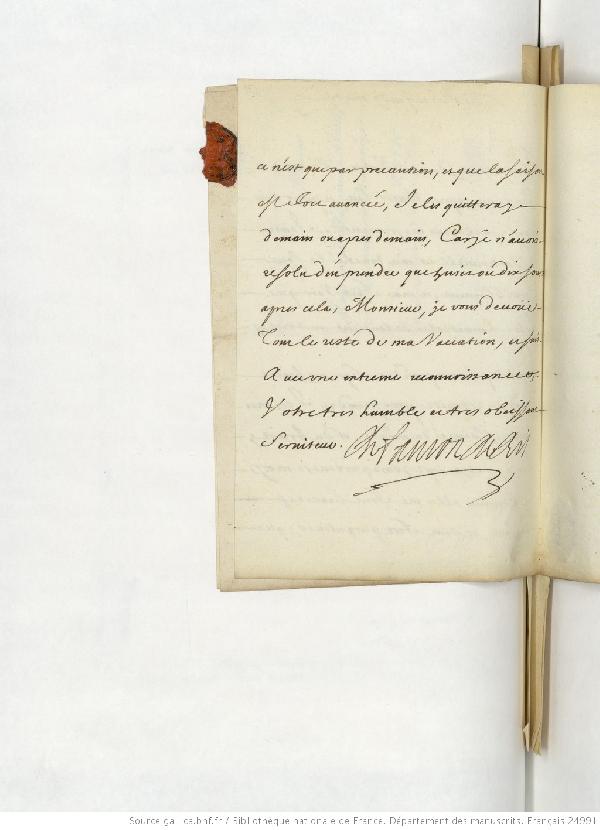 ce n'est que par precaution, et que la saison
est dont avancée, Je les quitteray
demain ou apres demain, Car je n'avois
resolu d'en prendre que huict ou dix jours
apres cela, Monsieur, je vous devoüe
Tout le reste de ma Vaccation, et suis
Avec une extreme reconnoissance
Votre tres humble et tres obeissant
Serviteur.
Source gallica.bnf.fr / Bibliothèque nationale de France. Département des manuscrits. Français 24991